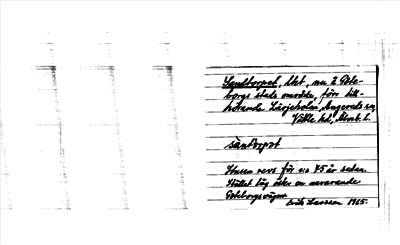 Sandtorpet, lht, nu i Göte-
borgs stads område, förr till-
hörande Lärjeholm, Angereds sn,
Vättle hd, Älvsb. l.
sàndtorpət
Husen revs för c:a 75 år sedan
Stället låg öster om nuvarande
Göteborgsvägen
Erik Larsson 1965.